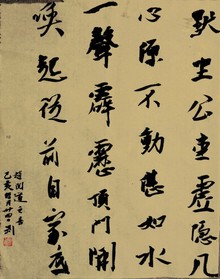 默坐公堂虛隱几
心源不動湛如水
一聲霹靂頂門開
喚起從前自家底
趙閱道之詩